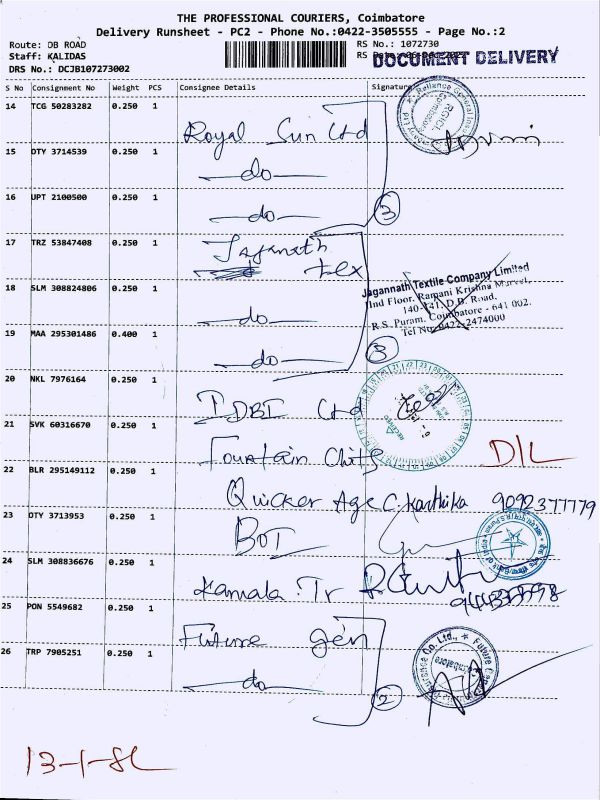 THE PROFESSIONAL COURIERS, Coimbatore
Delivery Runsheet - PC2 - Phone No.:0422-3505555 - Page No.:2
Route: DB ROAD
RS No.: 1072730
Staff: KALIDAS
DOCUMENT DELIVERY
DRS No.: DCJB107273002
S No Consignment No Weight PCS Consignee Details Signature
14 TCG 50283282 0.250 1 Royal Sun Ltd
15 OTY 3714539 0.250 1 do
16 UPT 2100500 0.250 1 do
3
17 TRZ 53847408 0.250 1 Jaganath Tex
Jagannath Textile Company Limited
IInd Floor, Ramani Krishna
140-141, D.B. Road,
R.S. Puram, Coimbatore - 641 002.
Tel No: 0422-2474000
18 SLM 308824806 0.250 1 do
19 MAA 295301486 0.400 1 do
3
20 NKL 7976164 0.250 1 IDBI Ltd
21 SVK 60316670 0.250 1 Fountain Chits D/L
22 BLR 295149112 0.250 1 Quicker Age C. Karthika 9092377779
23 OTY 3713953 0.250 1 BOI
24 SLM 308836676 0.250 1 Kamala Tr
25 PON 5549682 0.250 1 Future gen
26 TRP 7905251 0.250 1 do
2
13-1-8L